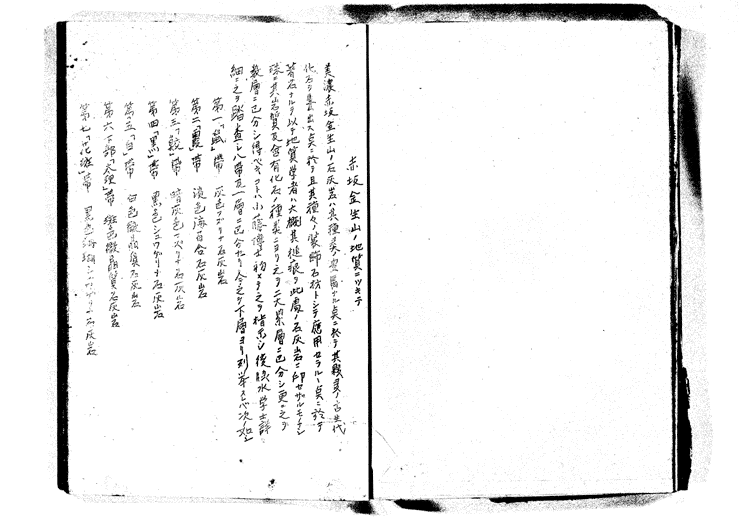 赤坂金生山ノ地質ニツキテ
美濃赤坂金生山ノ石灰岩ハ其種類ノ豊富ナル点ニ於テ其幾多ノ古生代
化石ヲ産出スル点ニ於テ且其種々ノ装飾石材トシテ應用セラルヽ点ニ於テ
著名ナルヲ以テ地質学者ハ大概其趾痕ヲ此處ノ石灰岩ニ印セザルモノナシ
其岩質及含有化石ノ種類ニヨリ之ヲ二大累層ニ区分シ更ニ之ヲ
数層ニ区分シ得ベキコトハ小藤博士初メテ之ヲ指示シ後脇水学士詳
細ニ之ヲ踏査シ八帯及一層ニ区分セリ今之ヲ下層ヨリ列挙スレバ次ノ如シ
第一「鼠」帯 灰色フズリナ石灰岩
第二「霞」帯 淡色海百合石灰岩
第三「鮫」帯 暗灰色フズリナ石灰岩
第四「黒」帯 黒色シュワゲリナ石灰岩
第五「白」帯 白色微晶質石灰岩
第六下部「太理」帯 雑色微晶質石灰岩
第七「花纹」帯 黒色 石灰岩